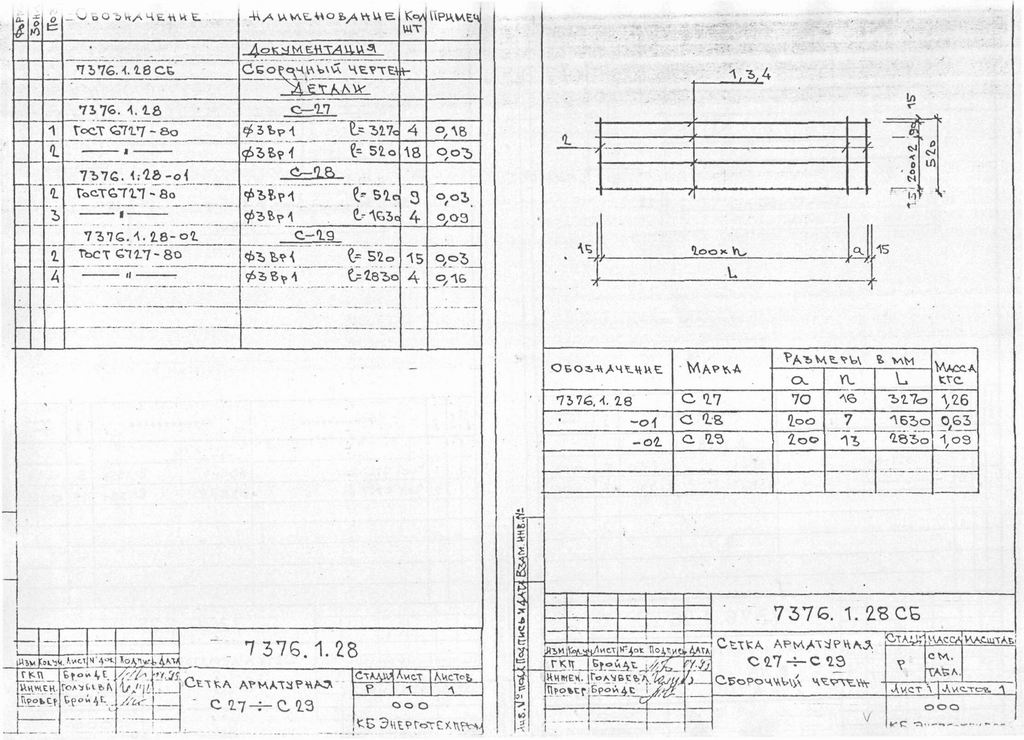 Обозначение Наименование Кол шт Примеч
Документация
7376.1.28СБ Сборочный чертеж
Детали
7376.1.28 С-27
1 ГОСТ 6727-80 ф3Вр1 ℓ=3270 4 0,18
2 —"— ф3Вр1 ℓ=520 18 0,03
7376.1.28-01 С-28
2 ГОСТ 6727-80 ф3Вр1 ℓ=520 9 0,03
3 —"— ф3Вр1 ℓ=1630 4 0,09
7376.1.28-02 С-29
2 ГОСТ 6727-80 ф3Вр1 ℓ=520 15 0,03
4 —"— ф3Вр1 ℓ=2830 4 0,16
7376.1.28
Изм Кол.уч. Лист № док Подпись Дата
ГКП Бройде
Инжен. Голубева
Провер Бройде
Сетка арматурная
С27÷С29
Стадия Лист Листов
Р 1 1
ООО
КБ Энерготехпром
1,3,4
2
15
200х2 90
15
520
15 200×n a 15
L
Обозначение Марка Размеры в мм Масса кгс
a n L
7376.1.28 С 27 70 16 3270 1,26
-01 С 28 200 7 1630 0,63
-02 С 29 200 13 2830 1,09
Инв. № подл Подпись и дата Взам.инв.№
7376.1.28СБ
Изм Кол.уч Лист № док Подпись Дата
ГКП Бройде
Инжен. Голубева
Провер Бройде
Сетка арматурная
С27÷С29
Сборочный чертеж
Стадия Масса Масштаб
Р см. табл.
Лист 1 Листов 1
ООО